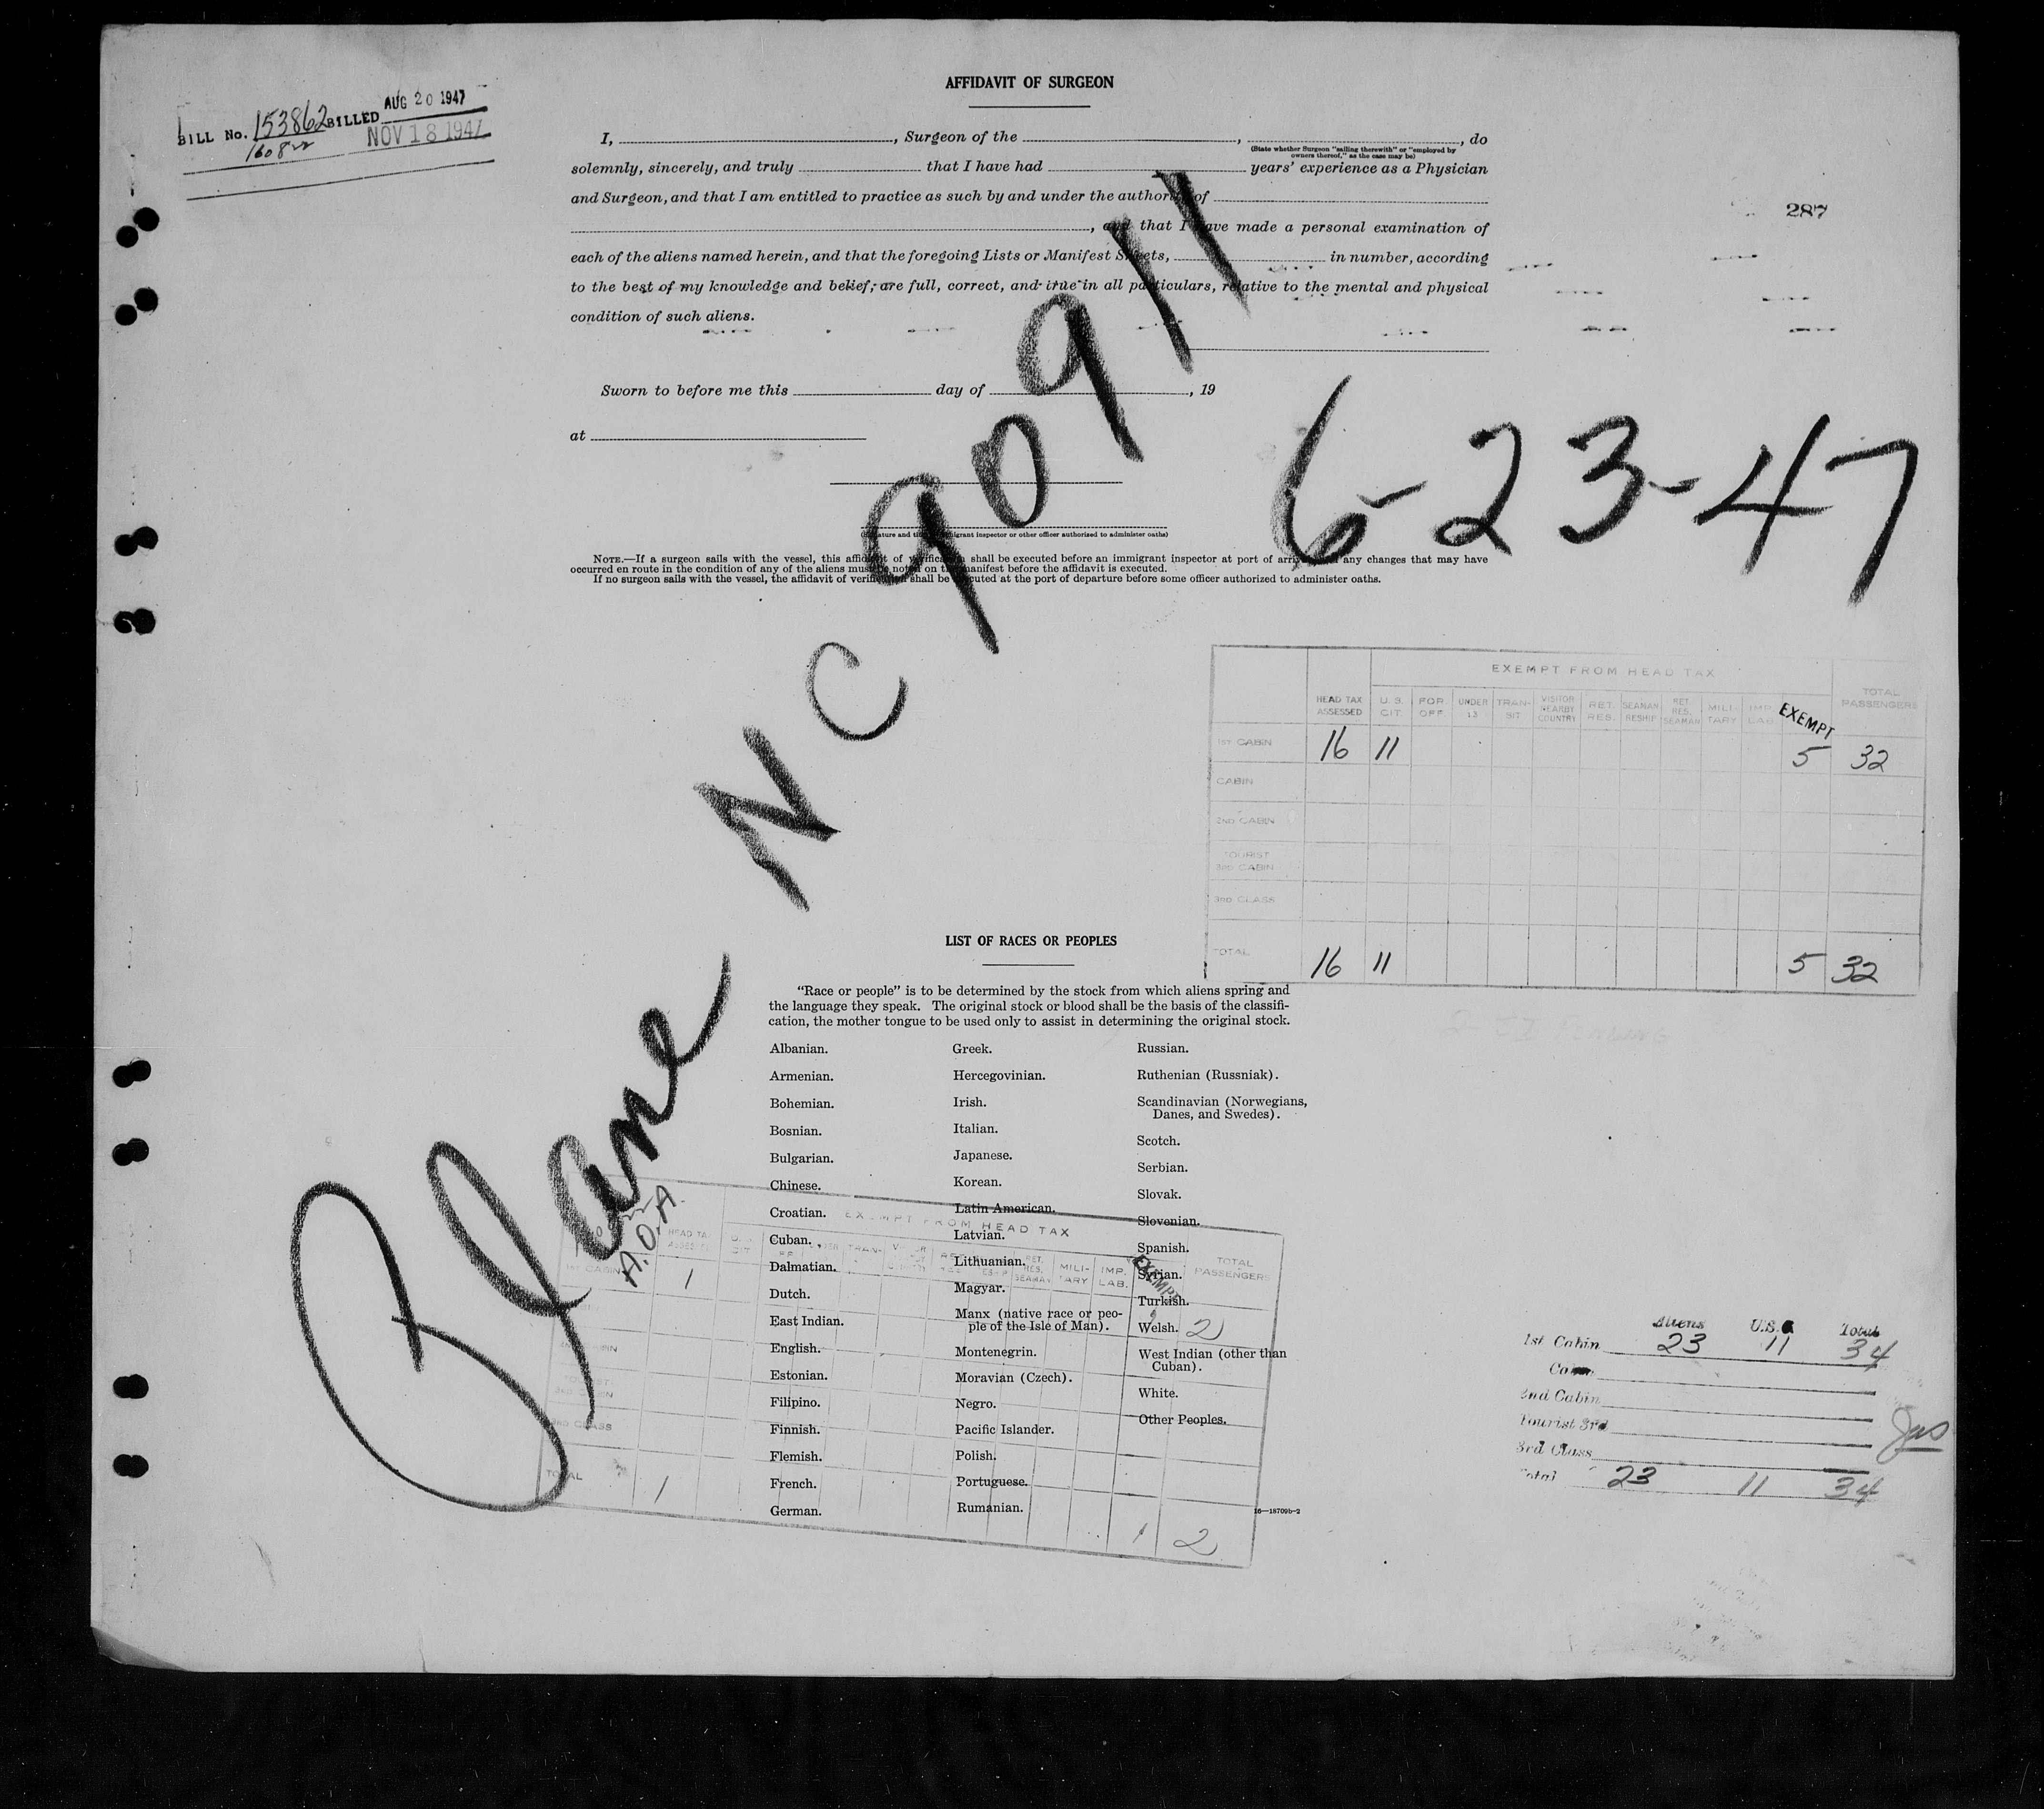 AFFIDAVIT OF SURGEON
BILL No. 153862 BILLED AUG 20 1947
NOV 18 1947
I, , Surgeon of the , , do
(State whether Surgeon "sailing therewith" or "employed by
owners thereof," as the case may be)
solemnly, sincerely, and truly that I have had years' experience as a Physician
and Surgeon, and that I am entitled to practice as such by and under the authority of
287
, and that I have made a personal examination of
each of the aliens named herein, and that the foregoing Lists or Manifest Sheets, in number, according
to the best of my knowledge and belief, are full, correct, and true in all particulars, relative to the mental and physical
condition of such aliens.
Sworn to before me this day of , 19
at
Plane NC 90911
6-23-47
(Signature and title of immigrant inspector or other officer authorized to administer oaths)
NOTE.—If a surgeon sails with the vessel, this affidavit of verification shall be executed before an immigrant inspector at port of arrival and any changes that may have
occurred en route in the condition of any of the aliens must be noted on the manifest before the affidavit is executed.
If no surgeon sails with the vessel, the affidavit of verification shall be executed at the port of departure before some officer authorized to administer oaths.
EXEMPT FROM HEAD TAX
HEAD TAX ASSESSED U.S. CIT. FOR OFF UNDER 13 TRANSIT VISITOR NEARBY COUNTRY RET. RES. SEAMAN RESHIP RET. RES. SEAMAN MILITARY IMP LAB EXEMPT TOTAL PASSENGERS
1ST CABIN 16 11 5 32
CABIN
2ND CABIN
TOURIST 3RD CABIN
3RD CLASS
TOTAL 16 11 5 32
LIST OF RACES OR PEOPLES
"Race or people" is to be determined by the stock from which aliens spring and
the language they speak. The original stock or blood shall be the basis of the classifi-
cation, the mother tongue to be used only to assist in determining the original stock.
Albanian.
Armenian.
Bohemian.
Bosnian.
Bulgarian.
Chinese.
Croatian.
Cuban.
Dalmatian.
Dutch.
East Indian.
English.
Estonian.
Filipino.
Finnish.
Flemish.
French.
German.
Greek.
Hercegovinian.
Irish.
Italian.
Japanese.
Korean.
Latin American.
Latvian.
Lithuanian.
Magyar.
Manx (native race or peo-
ple of the Isle of Man).
Montenegrin.
Moravian (Czech).
Negro.
Pacific Islander.
Polish.
Portuguese.
Rumanian.
Russian.
Ruthenian (Russniak).
Scandinavian (Norwegians,
Danes, and Swedes).
Scotch.
Serbian.
Slovak.
Slovenian.
Spanish.
Syrian.
Turkish.
Welsh.
West Indian (other than
Cuban).
White.
Other Peoples.
16—18709b-2
A.O.A.
EXEMPT FROM HEAD TAX
HEAD TAX ASSESSED CIT TRAN- RET. RES. SEAMAN MILI-TARY IMP. LAB. EXEMPT TOTAL PASSENGERS
1ST CABIN 1 1 2
TOTAL 1 1 2
Aliens U.S. Total
1st Cabin 23 11 34
2nd Cabin
Tourist 3rd
3rd Class
Total 23 11 34